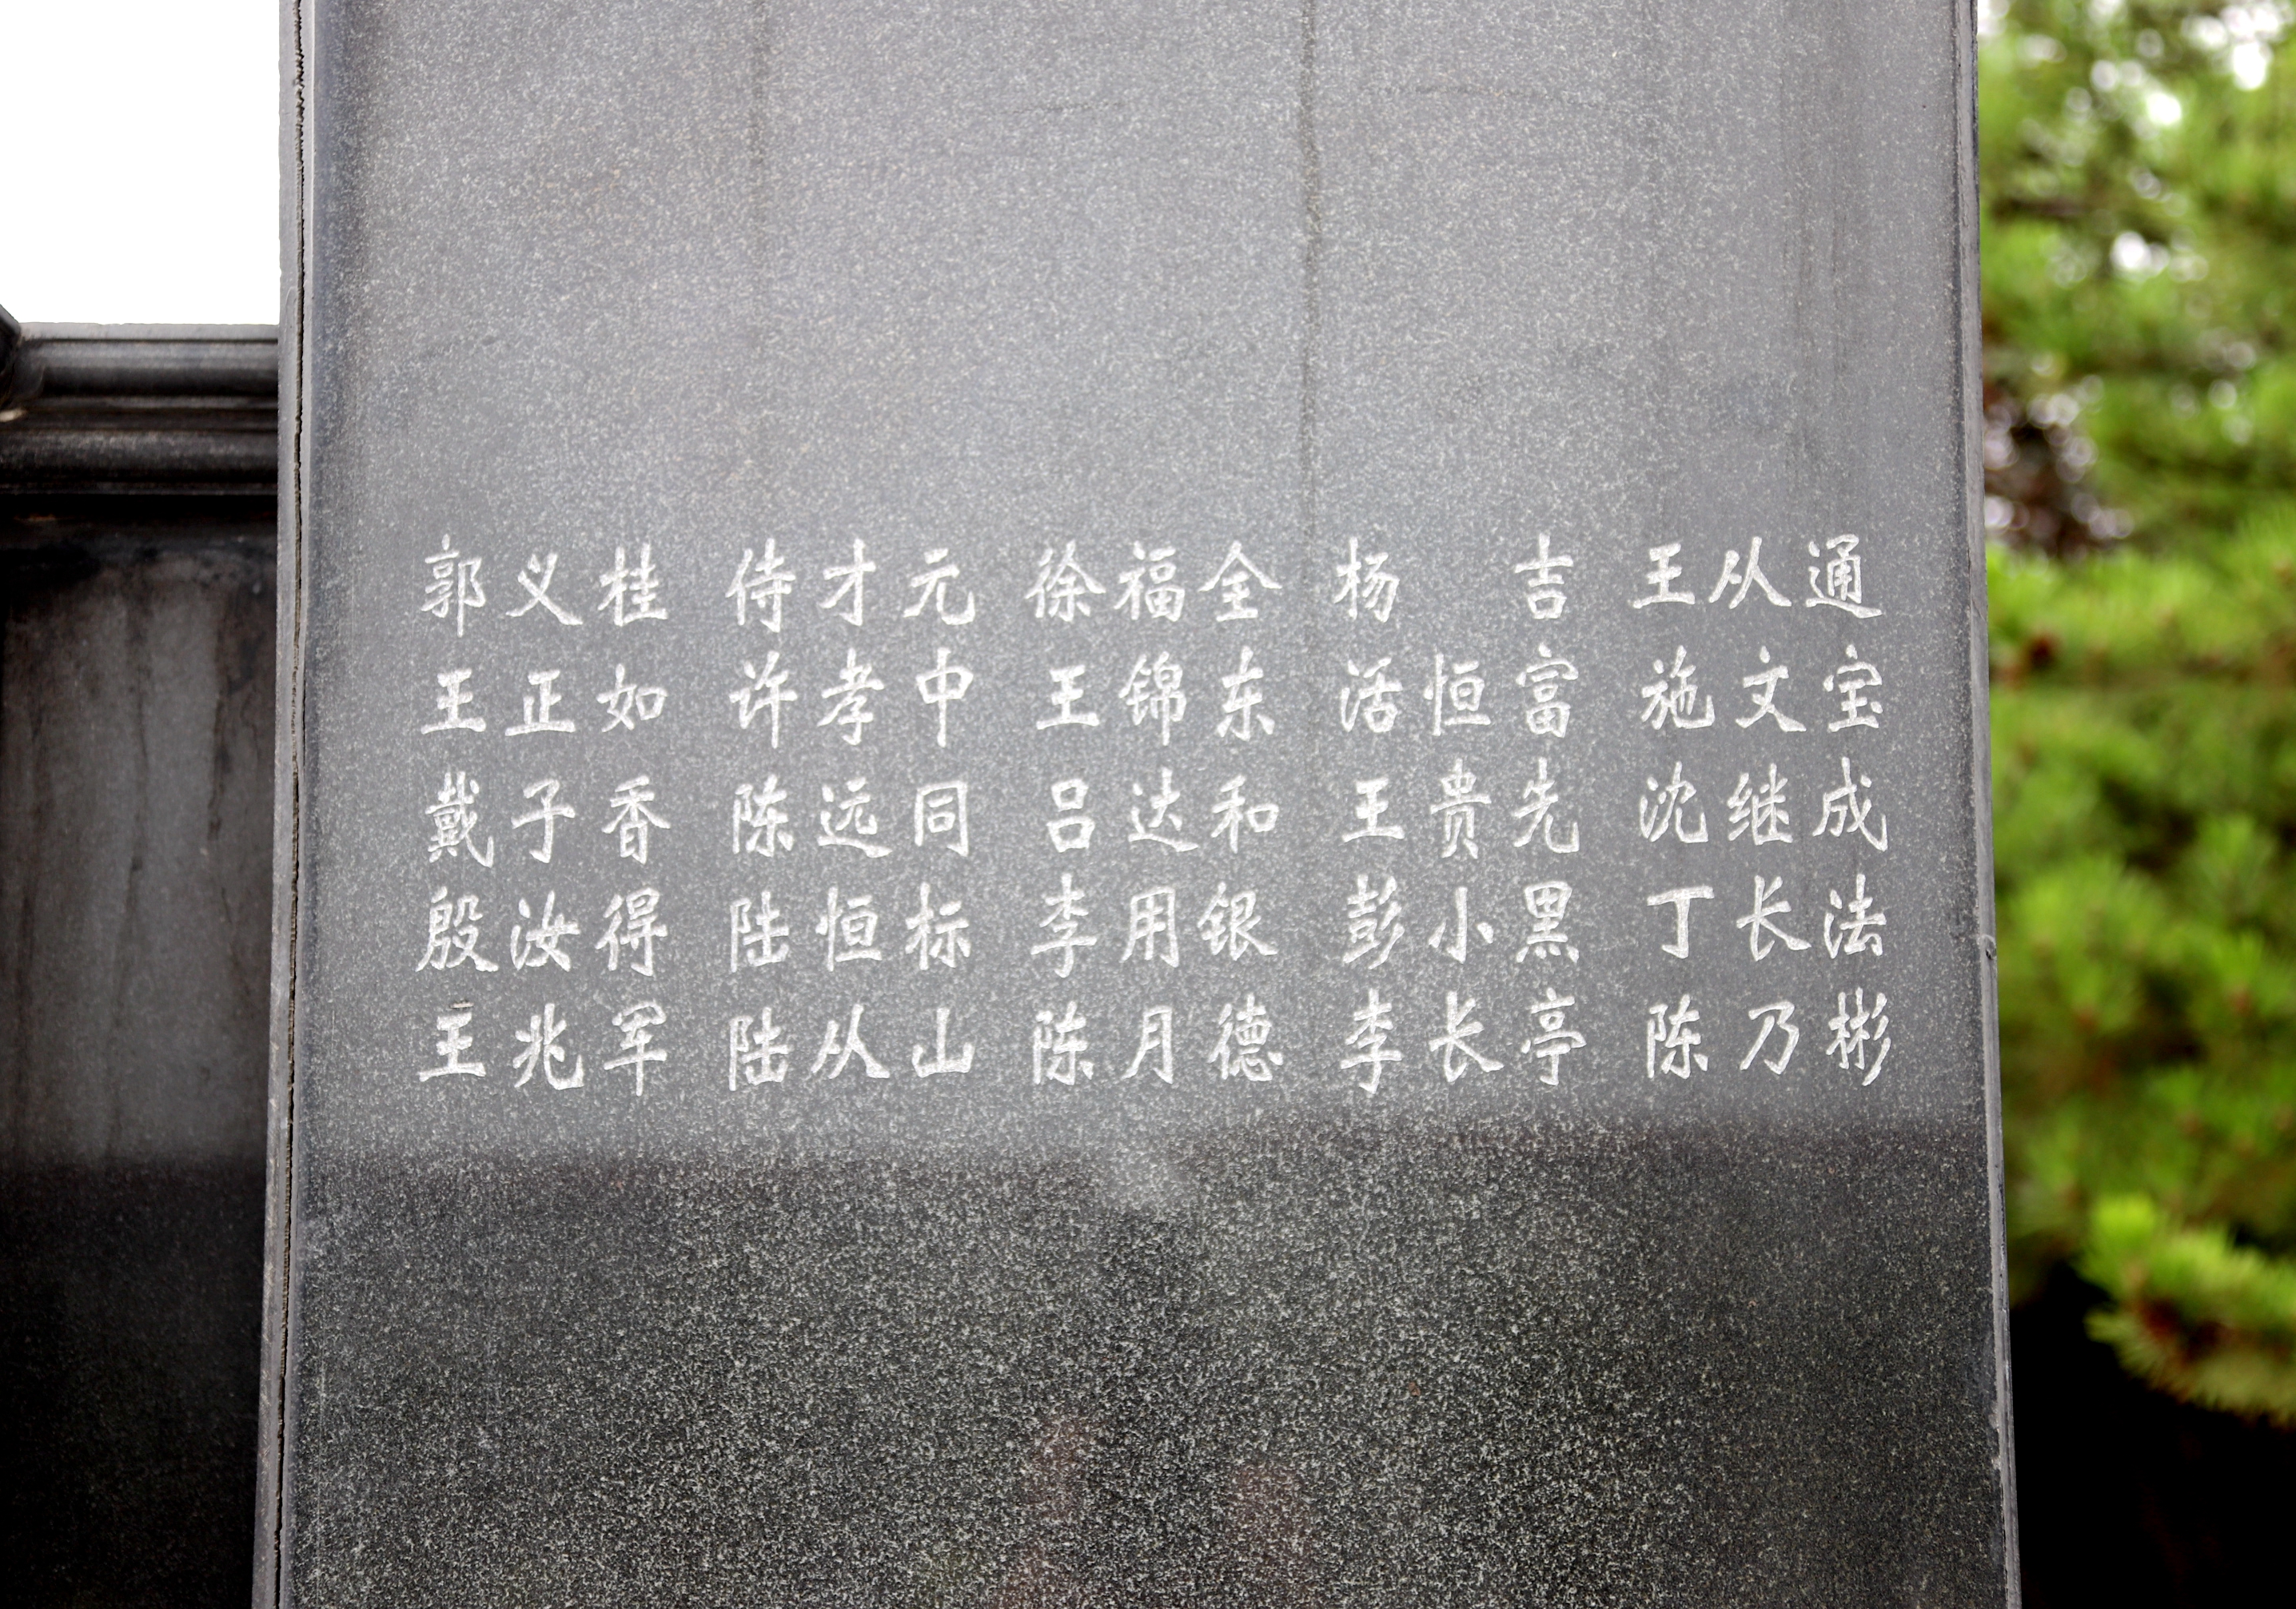 郭义桂 侍才元 徐福全 杨 吉 王从通
王正如 许孝中 王锦东 活恒富 施文宝
戴子香 陈远同 吕达和 王贵先 沈继成
殷汝得 陆恒标 李用银 彭小黑 丁长法
王兆军 陆从山 陈月德 李长亭 陈乃彬